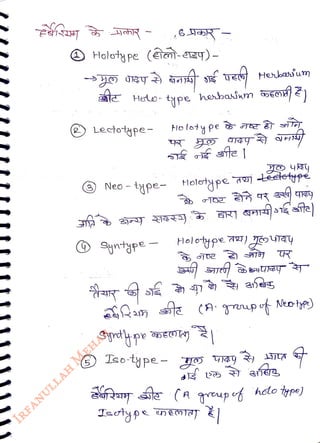 हर्बेरियम के प्रकार - , 6 प्रकार -
① Holotype (होलो-टाइप) -
→ मूल पादप से बनायी गई पहली Herbarium
शीट Holo-type herbarium कहलाती है।
② Lectotype - Holotype के नष्ट हो जाने
पर मूल पादप से बनायी
गई नई शीट।
③ Neo-type - Holotype तथा मूल पादप
के नष्ट होने पर उसी पादप
जाति के अन्य सदस्य के द्वारा बनायी गई शीट।
④ Syntype - Holotype तथा मूल पादप
के नष्ट हो जाने पर
उसी जाति के पादप से
तैयार की गई दो या दो से अधिक
हर्बेरियम शीट (A group of Neotype)
Syntype कहलाता है।
⑤ Iso-type - मूल पादप से प्राप्त की
गई एक से अधिक
हर्बेरियम शीट (A group of holotype)
Isotype कहलाता है।
IRFANULLAH